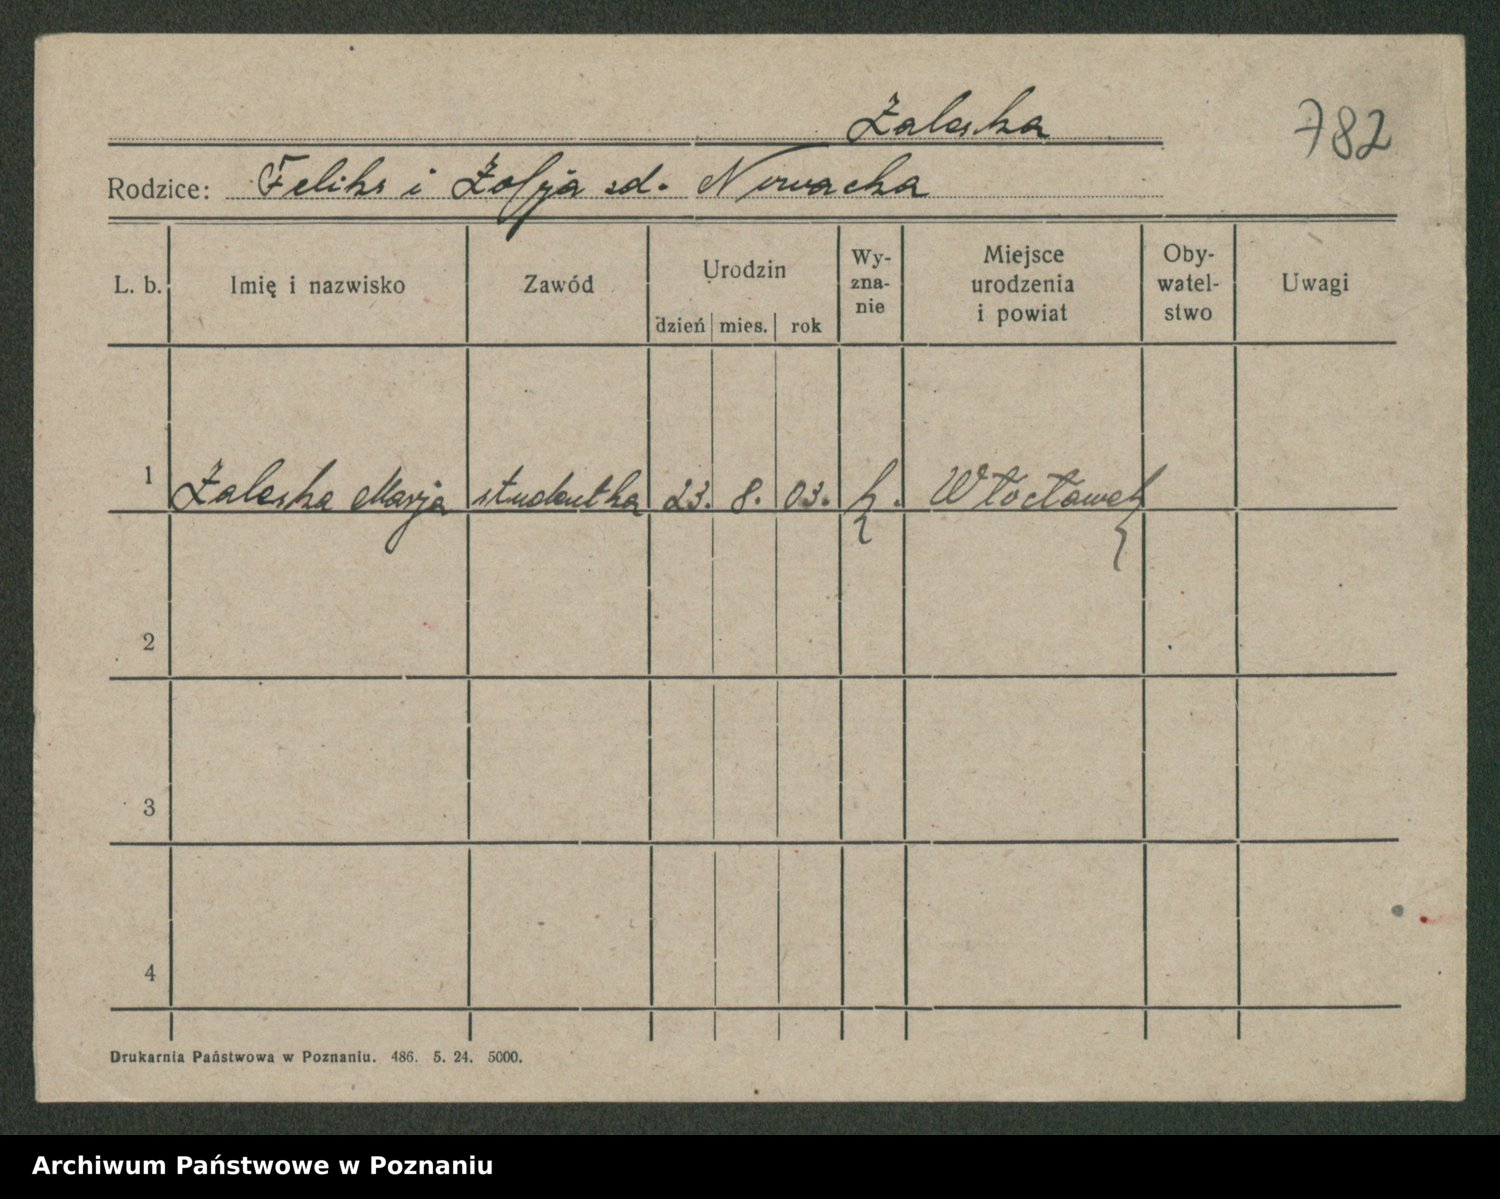 Zaleska
782
Rodzice: Feliks i Zofja zd. Nowacka
L. b. Imię i nazwisko Zawód Urodzin dzień mies. rok Wy-zna-nie Miejsce urodzenia i powiat Oby-watel-stwo Uwagi
1 Zaleska Marja studentka 23. 8. 03. k. Włocławek
2
3
4
Drukarnia Państwowa w Poznaniu. 486. 5. 24. 5000.
Archiwum Państwowe w Poznaniu